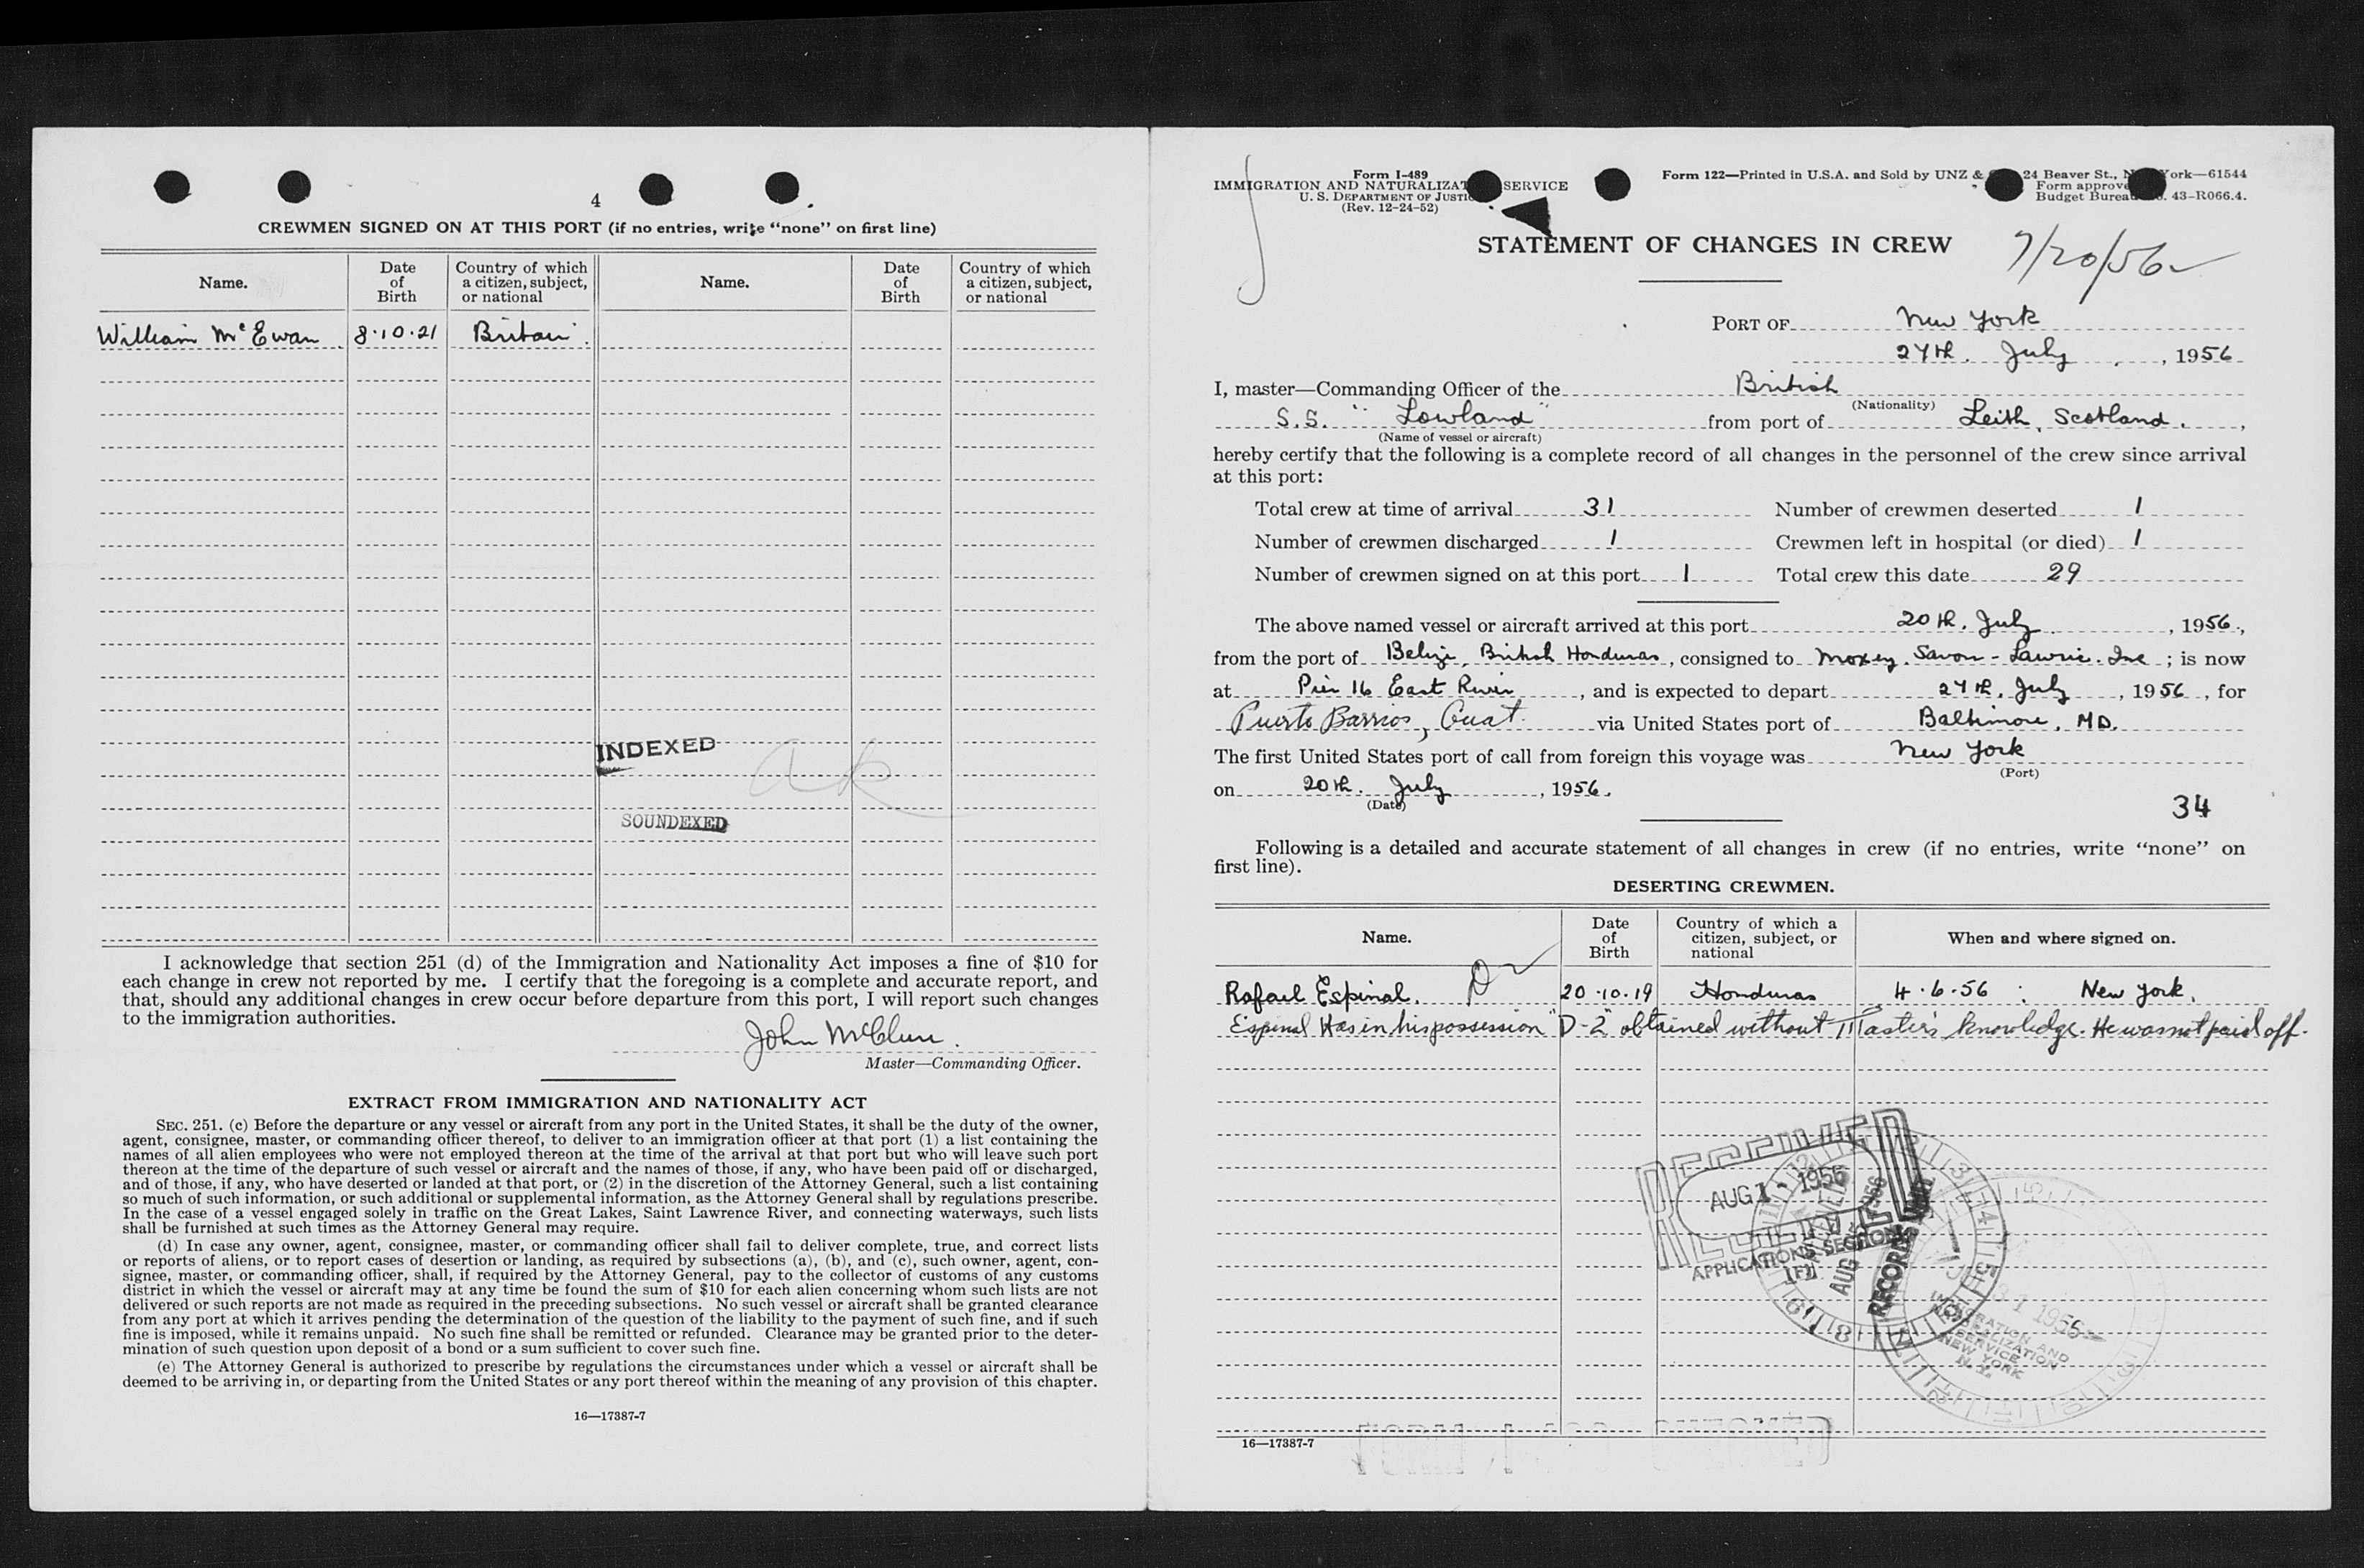 4
CREWMEN SIGNED ON AT THIS PORT (if no entries, write “none” on first line)
Name. Date of Birth Country of which a citizen, subject, or national Name. Date of Birth Country of which a citizen, subject, or national
William McEwan. 8·10·21 Britain.
INDEXED
ak
SOUNDEXED
I acknowledge that section 251 (d) of the Immigration and Nationality Act imposes a fine of $10 for
each change in crew not reported by me. I certify that the foregoing is a complete and accurate report, and
that, should any additional changes in crew occur before departure from this port, I will report such changes
to the immigration authorities.
John McClure.
Master—Commanding Officer.
EXTRACT FROM IMMIGRATION AND NATIONALITY ACT
SEC. 251. (c) Before the departure or any vessel or aircraft from any port in the United States, it shall be the duty of the owner,
agent, consignee, master, or commanding officer thereof, to deliver to an immigration officer at that port (1) a list containing the
names of all alien employees who were not employed thereon at the time of the arrival at that port but who will leave such port
thereon at the time of the departure of such vessel or aircraft and the names of those, if any, who have been paid off or discharged,
and of those, if any, who have deserted or landed at that port, or (2) in the discretion of the Attorney General, such a list containing
so much of such information, or such additional or supplemental information, as the Attorney General shall by regulations prescribe.
In the case of a vessel engaged solely in traffic on the Great Lakes, Saint Lawrence River, and connecting waterways, such lists
shall be furnished at such times as the Attorney General may require.
(d) In case any owner, agent, consignee, master, or commanding officer shall fail to deliver complete, true, and correct lists
or reports of aliens, or to report cases of desertion or landing, as required by subsections (a), (b), and (c), such owner, agent, con-
signee, master, or commanding officer, shall, if required by the Attorney General, pay to the collector of customs of any customs
district in which the vessel or aircraft may at any time be found the sum of $10 for each alien concerning whom such lists are not
delivered or such reports are not made as required in the preceding subsections. No such vessel or aircraft shall be granted clearance
from any port at which it arrives pending the determination of the question of the liability to the payment of such fine, and if such
fine is imposed, while it remains unpaid. No such fine shall be remitted or refunded. Clearance may be granted prior to the deter-
mination of such question upon deposit of a bond or a sum sufficient to cover such fine.
(e) The Attorney General is authorized to prescribe by regulations the circumstances under which a vessel or aircraft shall be
deemed to be arriving in, or departing from the United States or any port thereof within the meaning of any provision of this chapter.
16—17387-7
Form I-489
IMMIGRATION AND NATURALIZAT SERVICE
U. S. DEPARTMENT OF JUSTIC
(Rev. 12-24-52)
Form 122—Printed in U.S.A. and Sold by UNZ & 24 Beaver St., N York—61544
Form approve
Budget Bureau 43-R066.4.
STATEMENT OF CHANGES IN CREW
7/20/56
PORT OF New York
27th. July, 1956
I, master—Commanding Officer of the British
(Nationality)
S.S. "Lowland" from port of Leith, Scotland.,
(Name of vessel or aircraft)
hereby certify that the following is a complete record of all changes in the personnel of the crew since arrival
at this port:
Total crew at time of arrival 31 Number of crewmen deserted 1
Number of crewmen discharged 1 Crewmen left in hospital (or died) 1
Number of crewmen signed on at this port 1 Total crew this date 29
The above named vessel or aircraft arrived at this port 20th. July, 1956,
from the port of Belize, British Honduras, consigned to Moxey. Savon - Lawrie. Inc; is now
at Pier 16 East River, and is expected to depart 27th. July, 1956, for
Puerto Barrios, Guat. via United States port of Baltimore, MD.
The first United States port of call from foreign this voyage was New York
(Port)
on 20th. July, 1956.
(Date)
34
Following is a detailed and accurate statement of all changes in crew (if no entries, write “none” on
first line).
DESERTING CREWMEN.
Name. Date of Birth Country of which a citizen, subject, or national When and where signed on.
Rafael Espinal. D 20·10·19 Honduras 4·6·56 : New York.
Espinal Has in his possession "D-2" obtained without Master's knowledge. He was not paid off.
RECEIVED
AUG 1 - 1956
APPLICATIONS SECTION
AUG 1956
RECORDS
31 1956
IMMIGRATION AND
NATURALIZATION
SERVICE
NEW YORK
N.Y.
16—17387-7